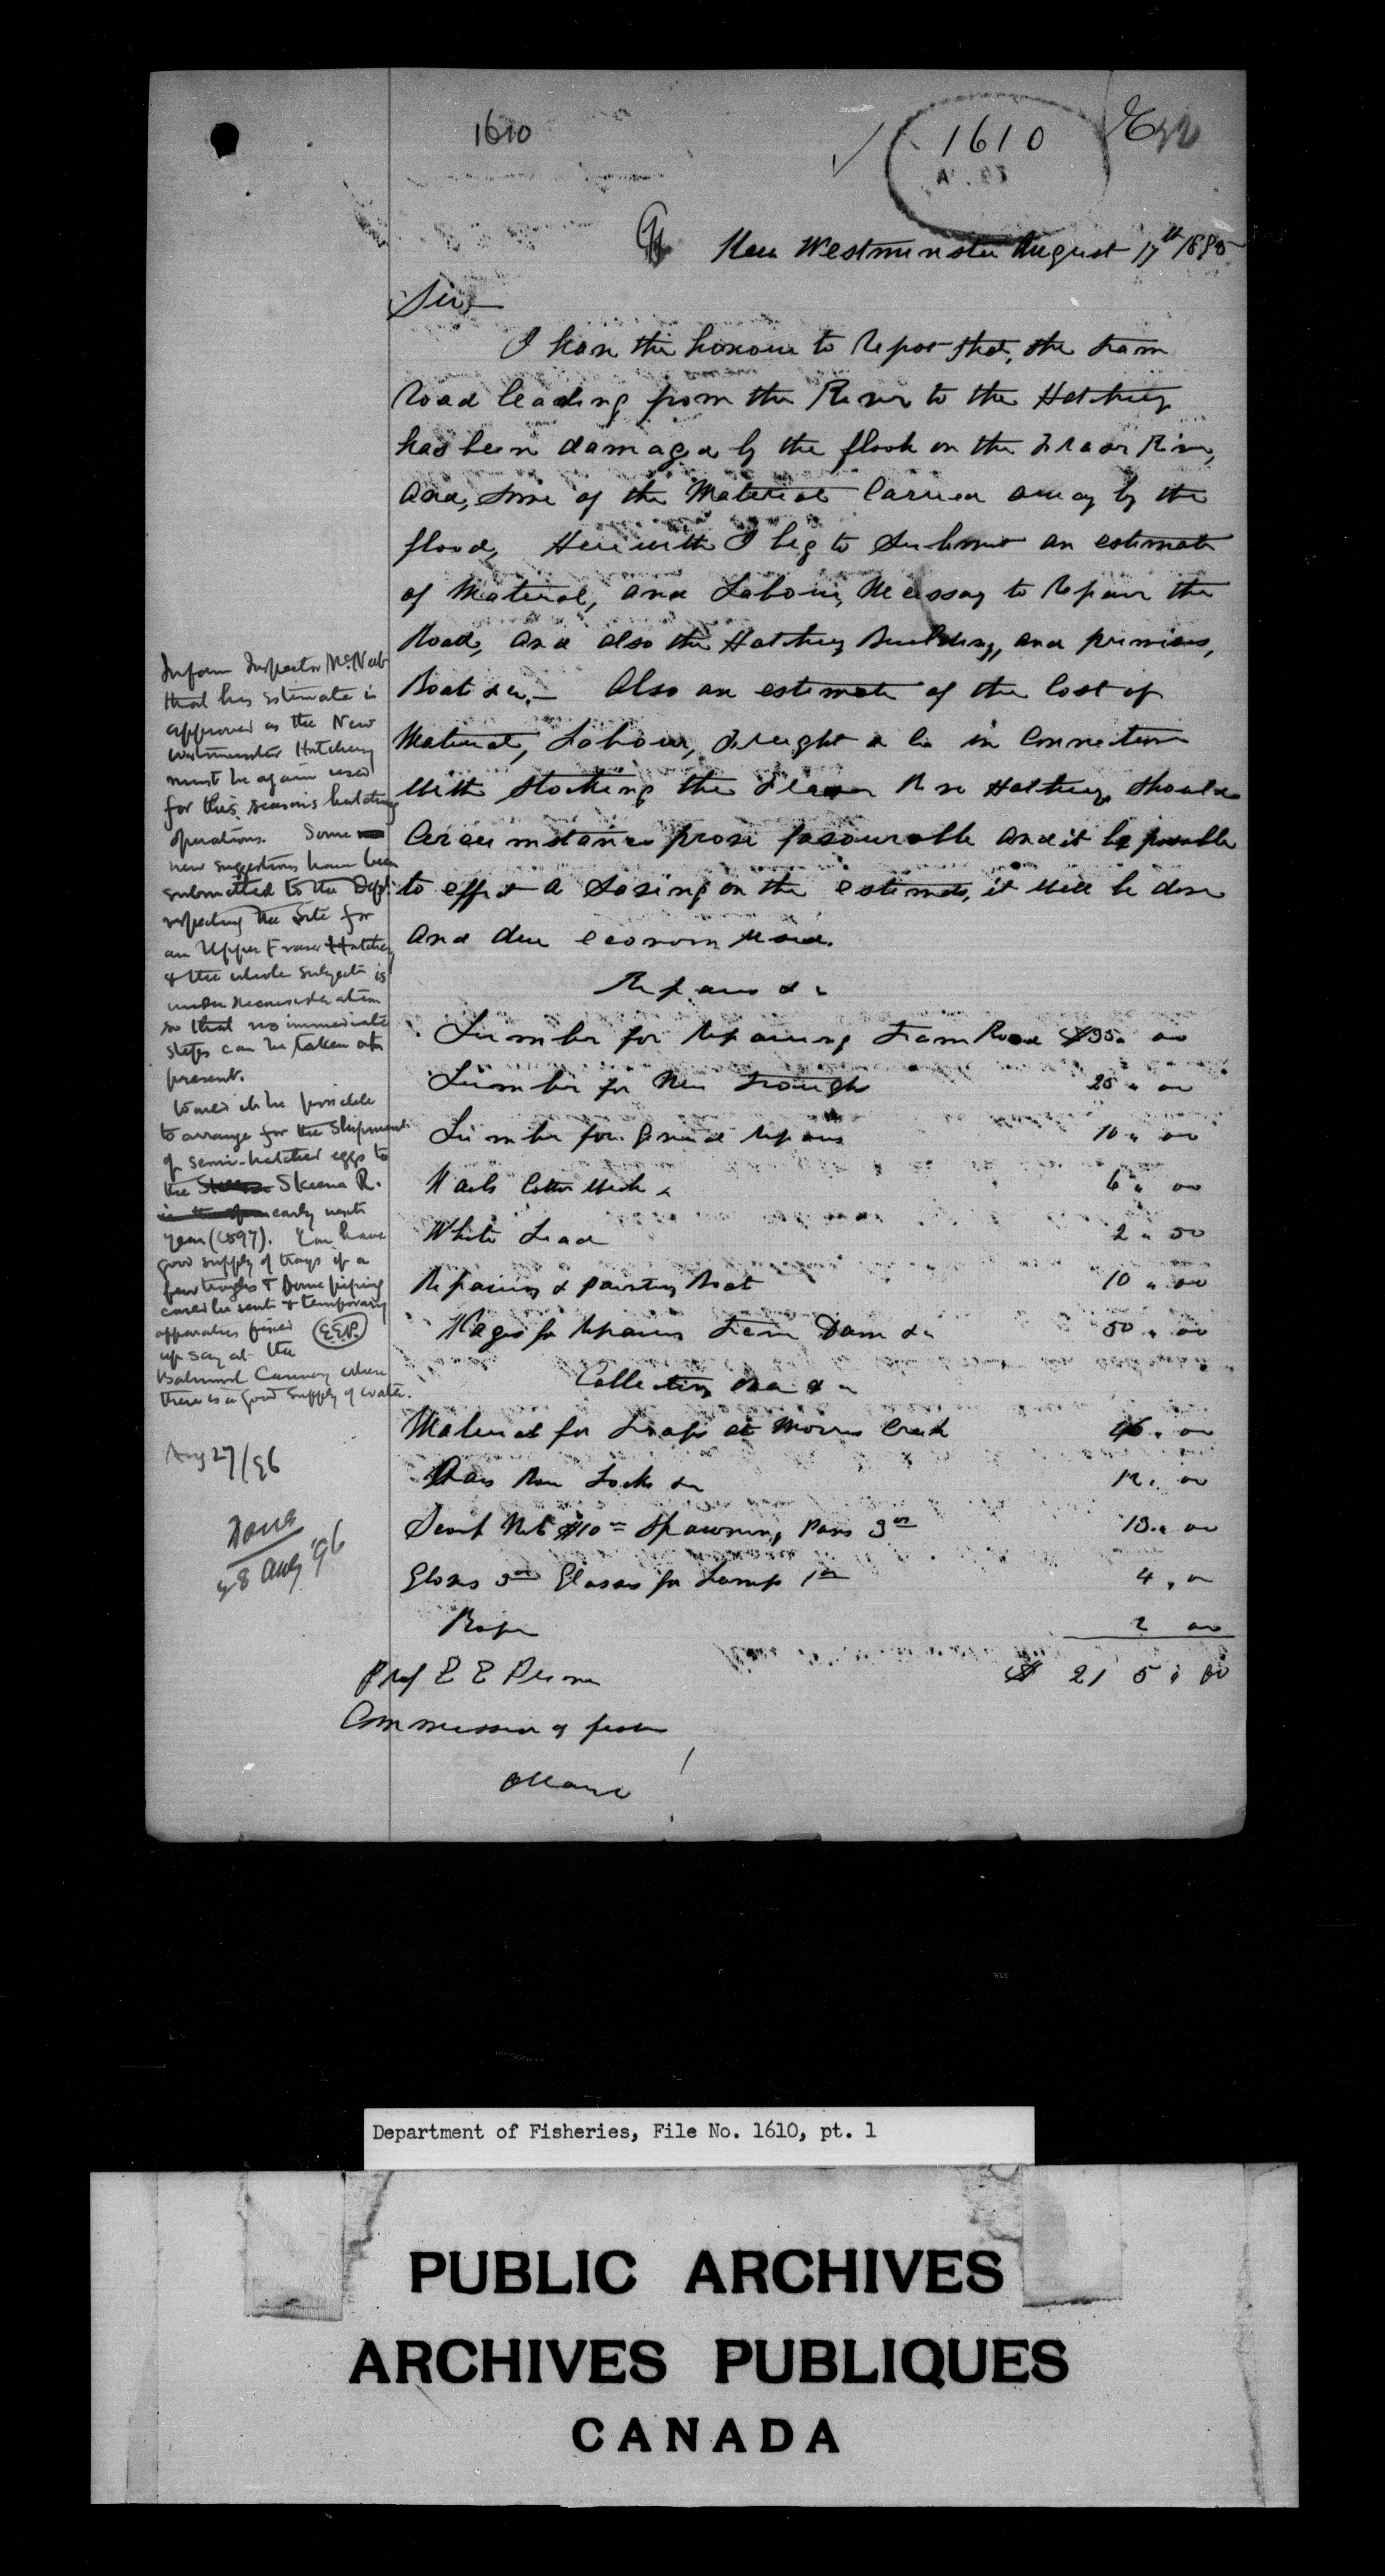 1610
1610
New Westminster August 17th 1896
Sir
I have the honour to Report that, the Tram
Road leading from the River to the Hatchery
has been damaged by the flood on the Fraser River,
and, some of the Material Carried away by the
flood, Herewith I beg to Submit an estimate
of Material, and Labour, Necessary to Repair the
Road, and also the Hatchery Building, and premises,
Boat &c.— Also an estimate of the Cost of
Material, Labour, Freight &c in Connection
With Stocking the Fraser River Hatchery Should
Circumstances prove favourable and it be possible
to effect a Saving on the estimate, it Will be done
and due economy used.
Repairs &c
Lumber for Repairing Tram Road $35. 00
Lumber for New Trough 25 " 00
Lumber for General Repairs 10 " 00
Nails Cotton Wick &c 6 " 00
White Lead 2 " 50
Repairing & painting Boat 10 " 00
Wages for Repairs Tram Dam &c 50 " 00
Collecting Ova &c
Material for Traps at Morris Creek 46 . 00
Oars Row Locks &c 12. 00
Net $10 00 Spawning Pans 3 00 13 " 00
Gloves 3 00 Glasses for Lamps 1 00 4 . 00
Rope 2 00
$ 215 " 50
Prof E E Prince
Commissioner of Fisheries
Ottawa
Inform Inspector McNab
that his estimate is
approved as the New
Westminster Hatchery
must be again used
for this season's hatching
operations. Some
new suggestions have been
submitted to the Dept.
respecting the site for
an Upper Fraser Hatchery
& the whole subject is
under reconsideration
so that no immediate
steps can be taken at
present.
Would it be possible
to arrange for the shipment
of semi-hatched eggs to
the Skeena R.
early next
year (1897). You have
good supply of trays if a
few troughs & some piping
could be sent & temporary
apparatus fixed E.E.P.
up say at the
Balmoral Cannery where
there is a good supply of water.
Aug 27/96
Done
28 Aug '96
Department of Fisheries, File No. 1610, pt. 1
PUBLIC ARCHIVES
ARCHIVES PUBLIQUES
CANADA